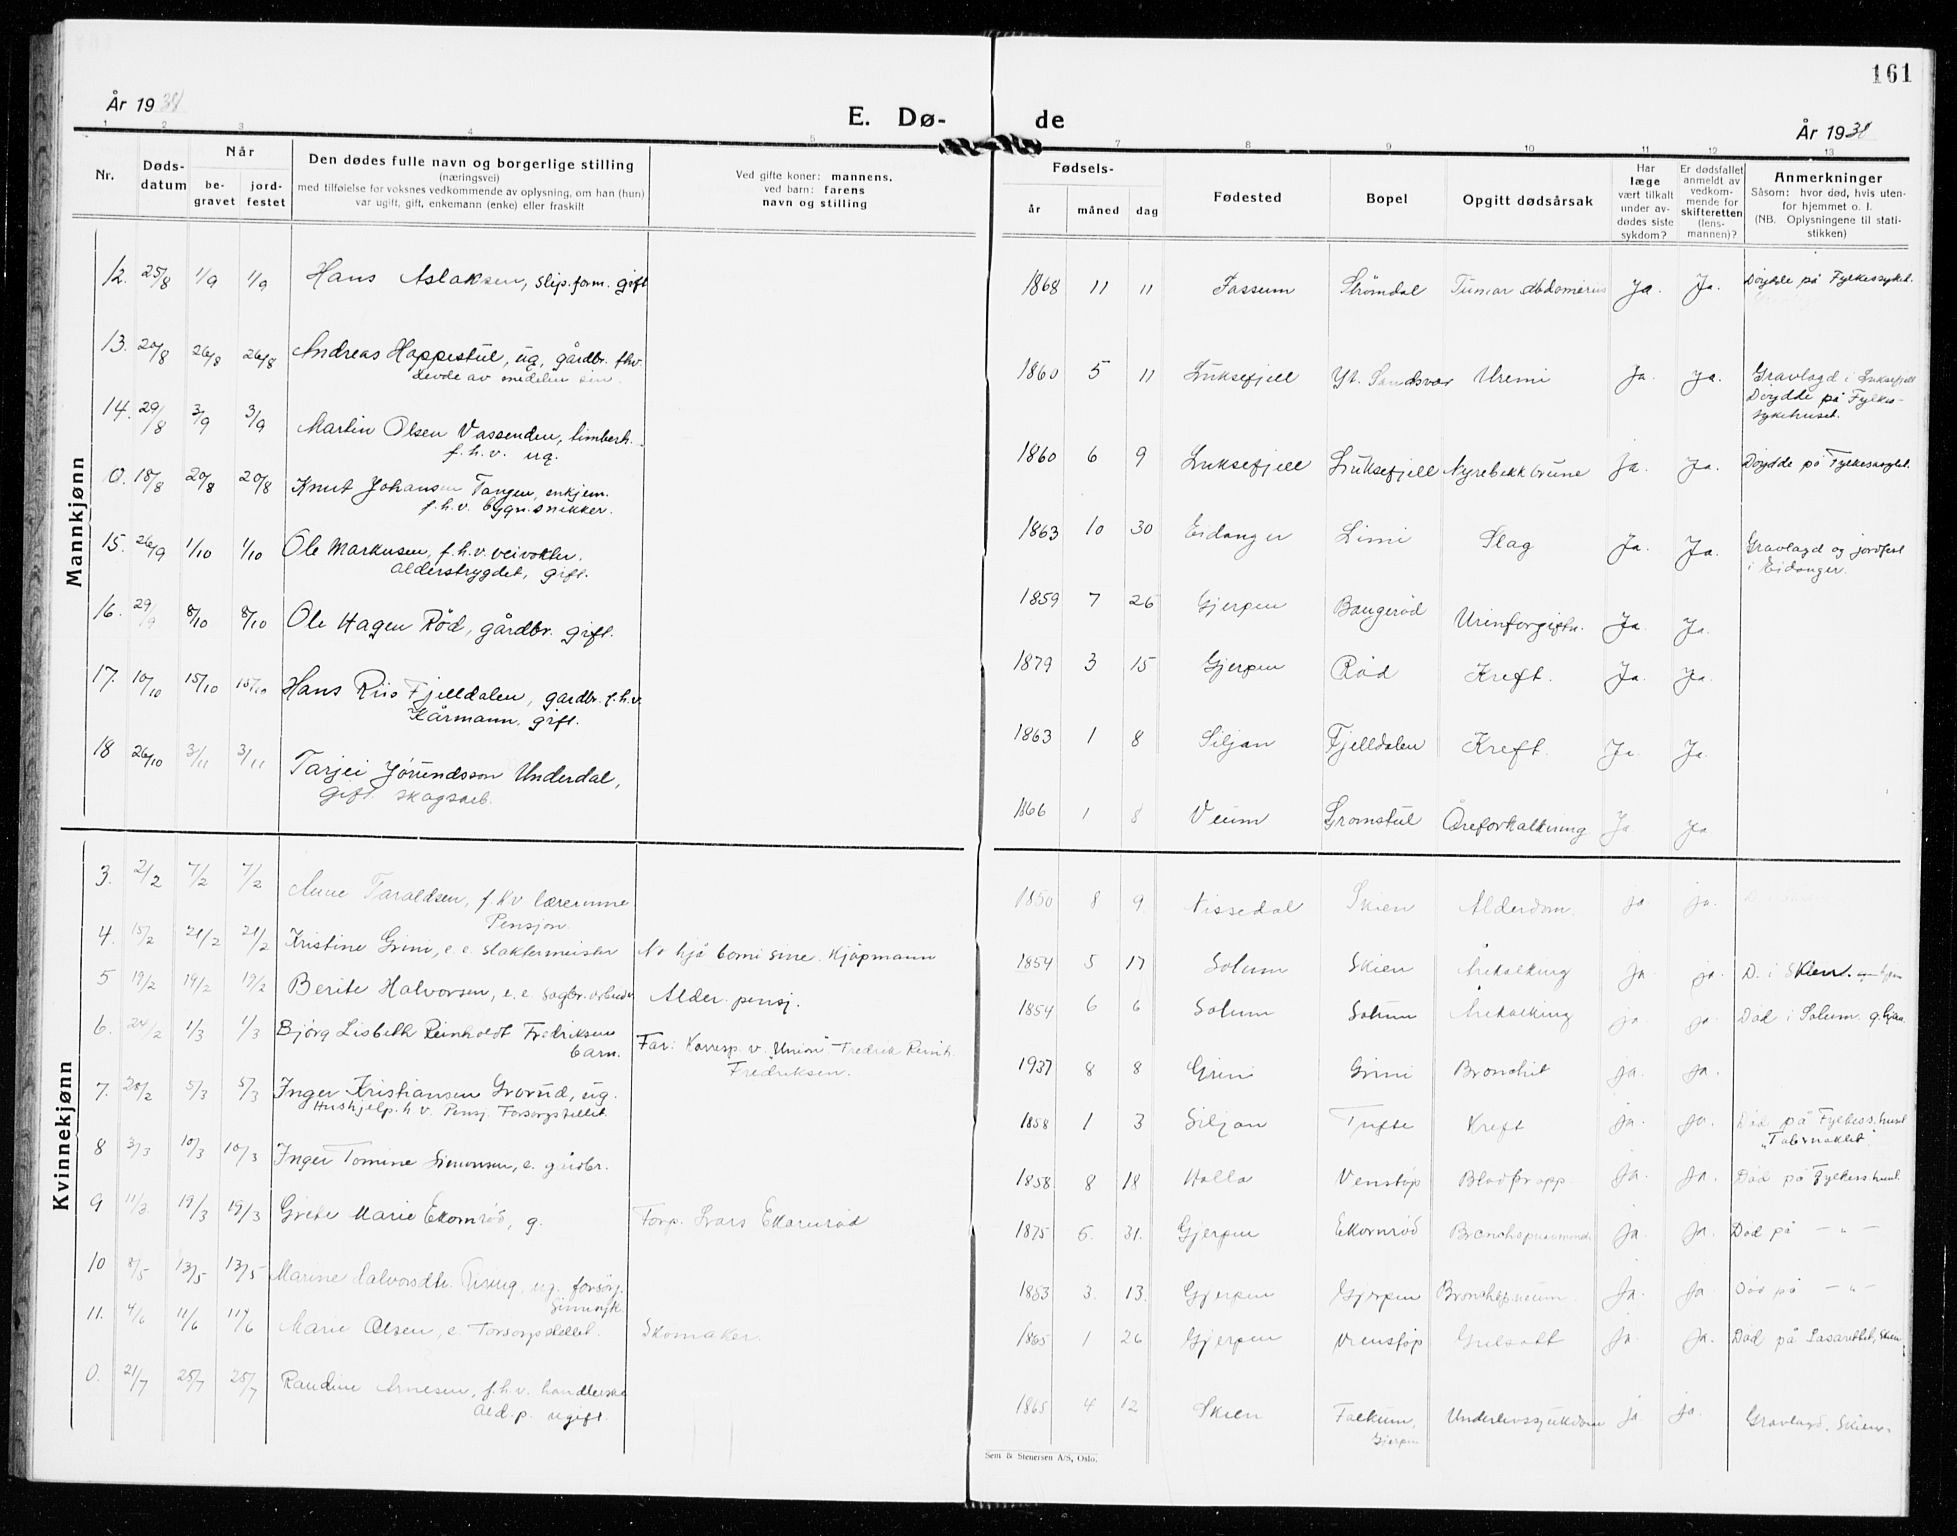 161
År 1938
E. Dø-
de
År 1938
1 2 3 4 5 7 8 9 10 11 12 13
Nr.
Døds-
datum
Når
be-
gravet
jord-
festet
Den dødes fulle navn og borgerlige stilling
(næringsvei)
med tilføielse for voksnes vedkommende av oplysning, om han (hun)
var ugift, gift, enkemann (enke) eller fraskilt
Ved gifte koner: mannens,
ved barn: farens
navn og stilling
Fødsels-
år måned dag
Fødested
Bopel
Opgitt dødsårsak
Har
læge
vært tilkalt
under av-
dødes siste
sykdom?
Er dødsfallet
anmeldt av
vedkom-
mende for
skifteretten
(lens-
mannen)?
Anmerkninger
Såsom: hvor død, hvis uten-
for hjemmet o. l.
(NB. Oplysningene til stati-
stikken)
Mannkjønn
12. 25/8 1/9 1/9 Hans Aslaksen, slip.form. gift 1868 11 11 Fossum Strømdal Tumor abdominis Ja. Ja. Døydde på Fylkessykeh.
13. 20/8 26/8 26/8 Andreas Hoppestul, ug, gårdbr. fhv.
levde av midelen sin. 1860 5 11 Luksefjell Yt. Sandsvær Uremi Ja. Ja. Gravlagd i Luksefjell
Døydde på Fylkes-
sykehuset.
14. 29/8 3/9 3/9 Martin Olsen Vassenden, timberh.
f.h.v. ug. 1860 6 9 Luksefjell Luksefjell Nyrebekkbrune ja. Ja. Døydde på Fylkessykeh.
0. 18/8 20/8 20/8 Knut Johansen Tangen, enkjem.
f.h.v. bygn.snikker. 1863 10 30 Eidanger Limi Slag Ja. Ja. Gravlagd og jordfest
i Eidanger.
15. 26/9 1/10 1/10 Ole Markusen, f.h.v. veivokter.
Alderstrygdet, gift. 1859 7 26 Gjerpen Bangerød Urinforgiftn. Ja. Ja.
16. 29/9 8/10 8/10 Ole Hagen Rød, gårdbr. gift. 1879 3 15 Gjerpen Rød Kreft. Ja. Ja.
17. 10/10 15/10 15/10 Hans Riis Fjelldalen, gardbr. f.h.v.
Kårmann, gift. 1863 1 8 Siljan Fjelldalen Kreft. Ja. Ja.
18 26/10 3/11 3/11 Tarjei Jørundsson Underdal,
gift. skogsarb. 1866 1 8 Veum Gromstul Åreforkalkning Ja Ja
Kvinnekjønn
3. 2/2 7/2 7/2 Anne Taraldsen, f.h.v lærerinne
Pensjon. 1850 8 9 Nissedal Skien Alderdom. ja ja.
4. 15/2 21/2 21/2 Kristine Grini, e. e. slaktermeister No hjå borni sine. Kjøpmann 1854 5 17 Solum Skien Årekalking ja. ja. D. i Skien.
5 19/2 19/2 19/2 Berite Halvorsen, e. e. sagbr. arbeider Alder. pensj. 1854 6 6 Solum Solum Årekalking ja. ja. Død i Solum.
6. 24/2 1/3 1/3 Bjørg Lisbeth Reinholdt Fredriksen
barn. Far: Korresp. v. "Union" Fredrik Reinh.
Fredriksen. 1937 8 8 Grini Grini Bronchit ja. ja.
7. 28/2 5/3 5/3 Inger Kristiansen Grorud, ug.
Hushjelp. h v. Pensj. Forsorgstellet 1858 1 3 Siljan Tufte Kreft ja. ja. Død på Fylkess.huset
"Tabernaklet".
8 3/3 10/3 10/3 Inger Tomine Simonsen, e. gårdbr. 1858 8 18 Holla Venstøp Blodpropp ja. ja. Død på Fylkess.huset.
9 11/3 19/3 19/3 Grete Marie Ekornrød, g. Forp. Lars Ekornrød 1875 5. 31. Gjerpen Ekornrød Bronchopneumoni ja. ja. Død på — " —
10 8/5 13/5 13/5 Marine Halvorsdtr. ug. forsørj.
Sinnsyk. 1853 3. 13. Gjerpen Gjerpen Bronchopneum. Ja. Ja Død på — " —
11. 4/6 11/6 11/6 Marie Olsen, e. Forsorgstellet. Skomaker. 1865 1 26 Gjerpen Venstøp Gulsott ja. ja. Død på Lasarettet, Skien
0. 21/7 25/7 25/7 Randine Arnesen, f.h.v. handlerske
Ald.p. ugift. 1865 4 12 Skien Falkum,
Gjerpen Underlivssjukdom ja ja. Gravlagd. Skien.
Sem & Stenersen A/S, Oslo.